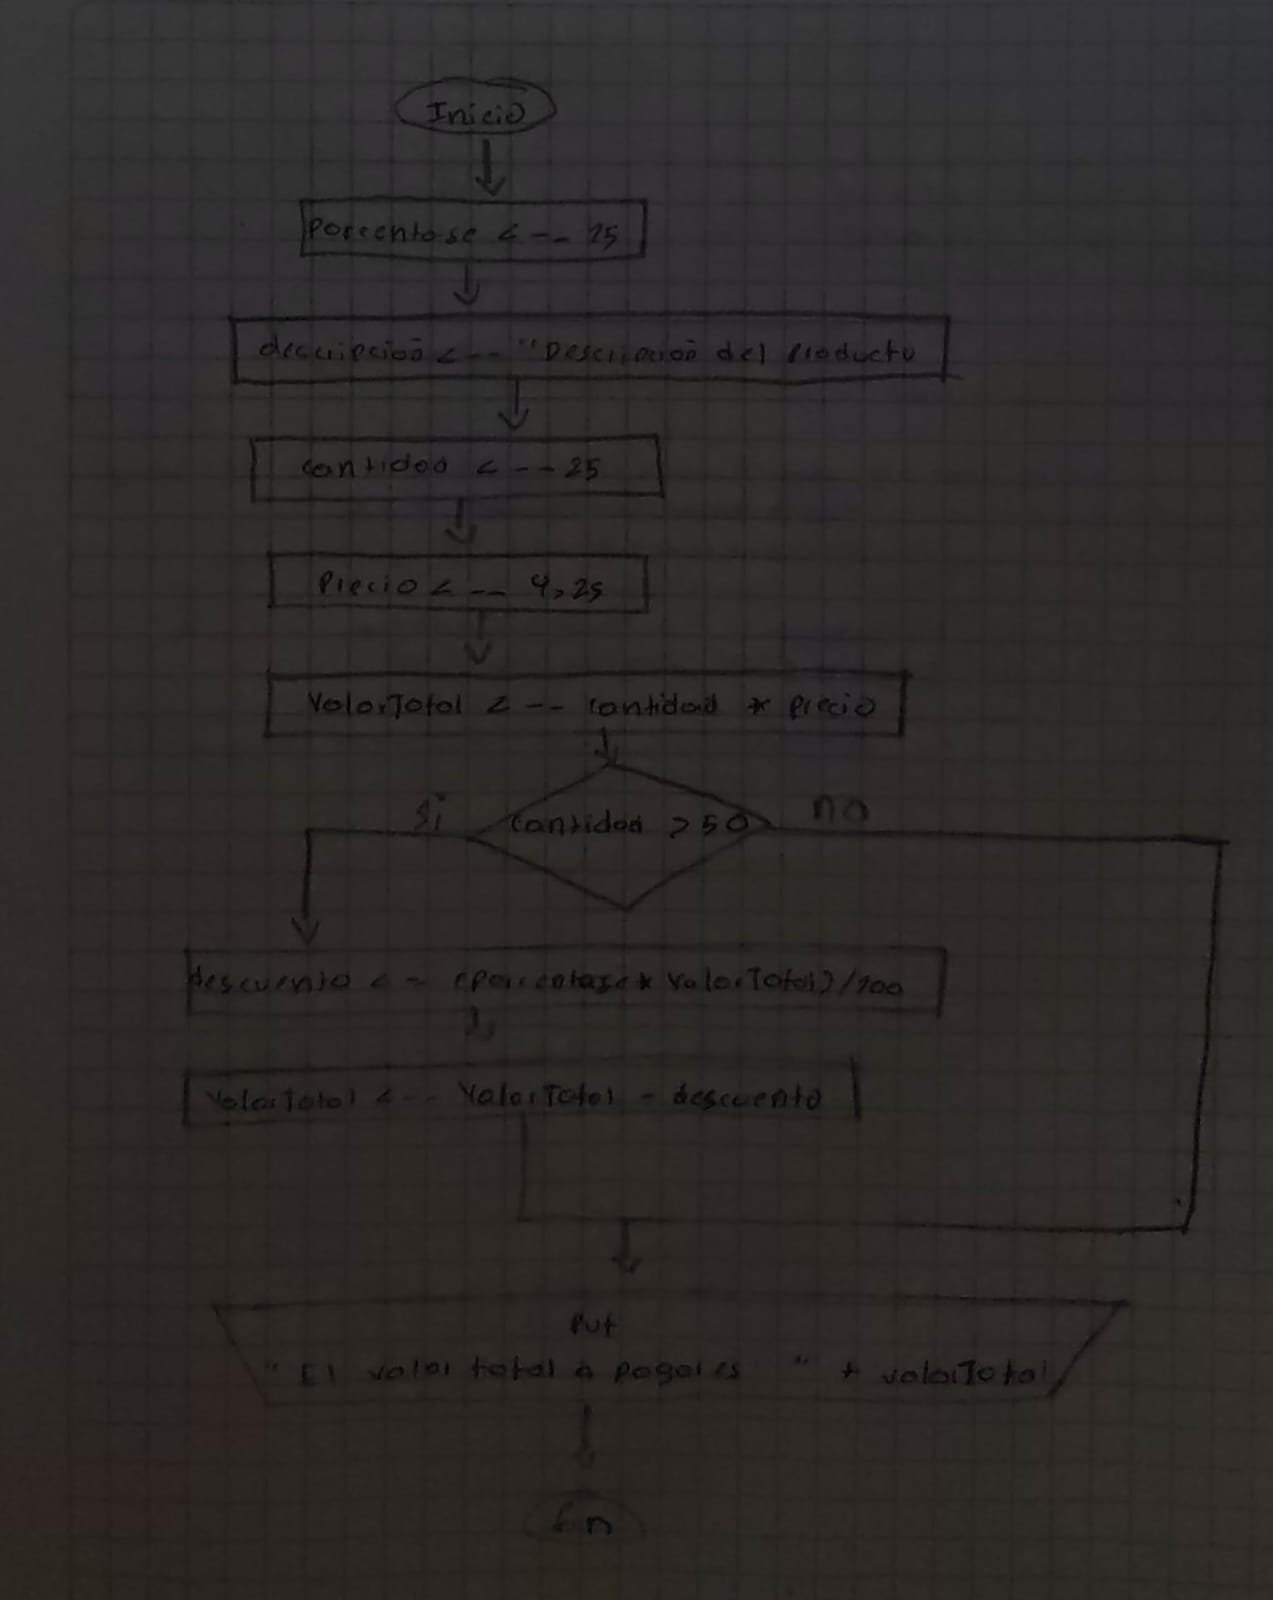 Inicio
Porcentase <-- 25
descripcion <-- "Descripcion del Producto
cantidad <-- 25
Precio <-- 4,25
ValorTotal <-- cantidad * precio
si
cantidad > 50
no
descuento <-- (Porcentase * ValorTotal)/100
ValorTotal <-- ValorTotal - descuento
Put
"El valor total a pagar es " + valorTotal
fin